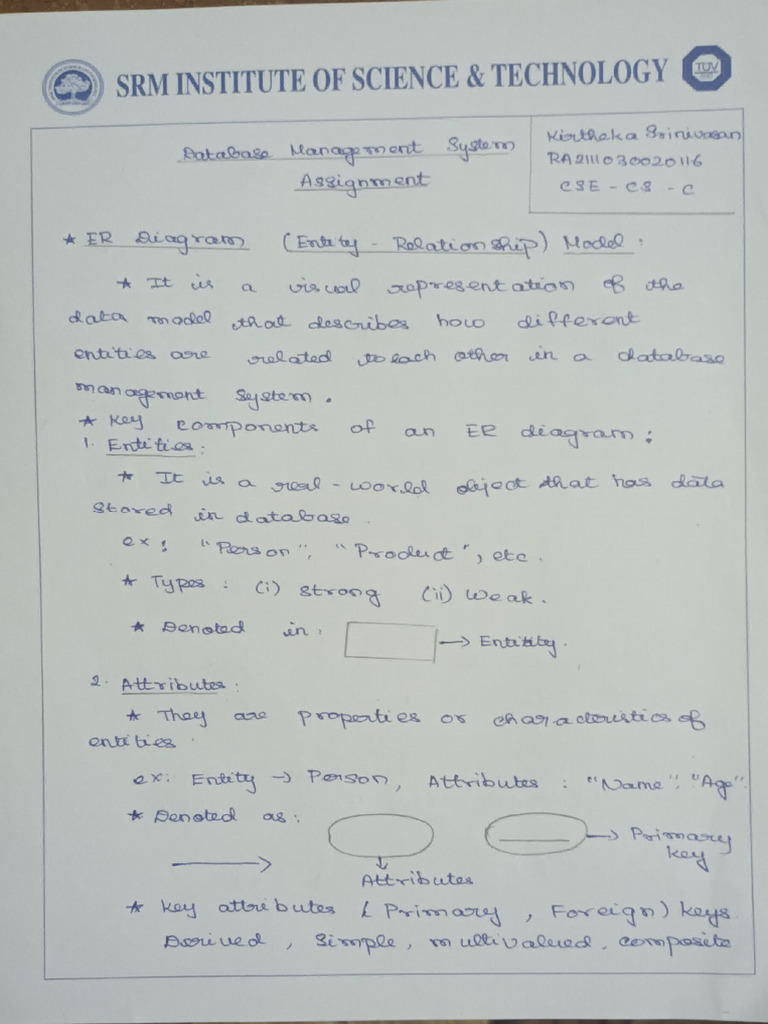 SRM INSTITUTE OF SCIENCE & TECHNOLOGY
TUV
Database Management System
Assignment
Kirtheka Srinivasan
RA2111030020116
CSE - CS - C
* ER Diagram (Entity - Relationship) Model :
* It is a visual representation of the
data model that describes how different
entities are related to each other in a database
management system.
* Key components of an ER diagram :
1. Entities :
* It is a real-world object that has data
stored in database.
ex : "Person", "Product", etc.
* Types : (i) Strong (ii) Weak.
* Denoted in : → Entitity.
2. Attributes :
* They are properties or characteristics of
entities.
ex: Entity → Person, Attributes : "Name", "Age".
* Denoted as :
→ Primary
key
Attributes
* Key attributes (Primary, Foreign) keys
Derived, Simple, multivalued, composite